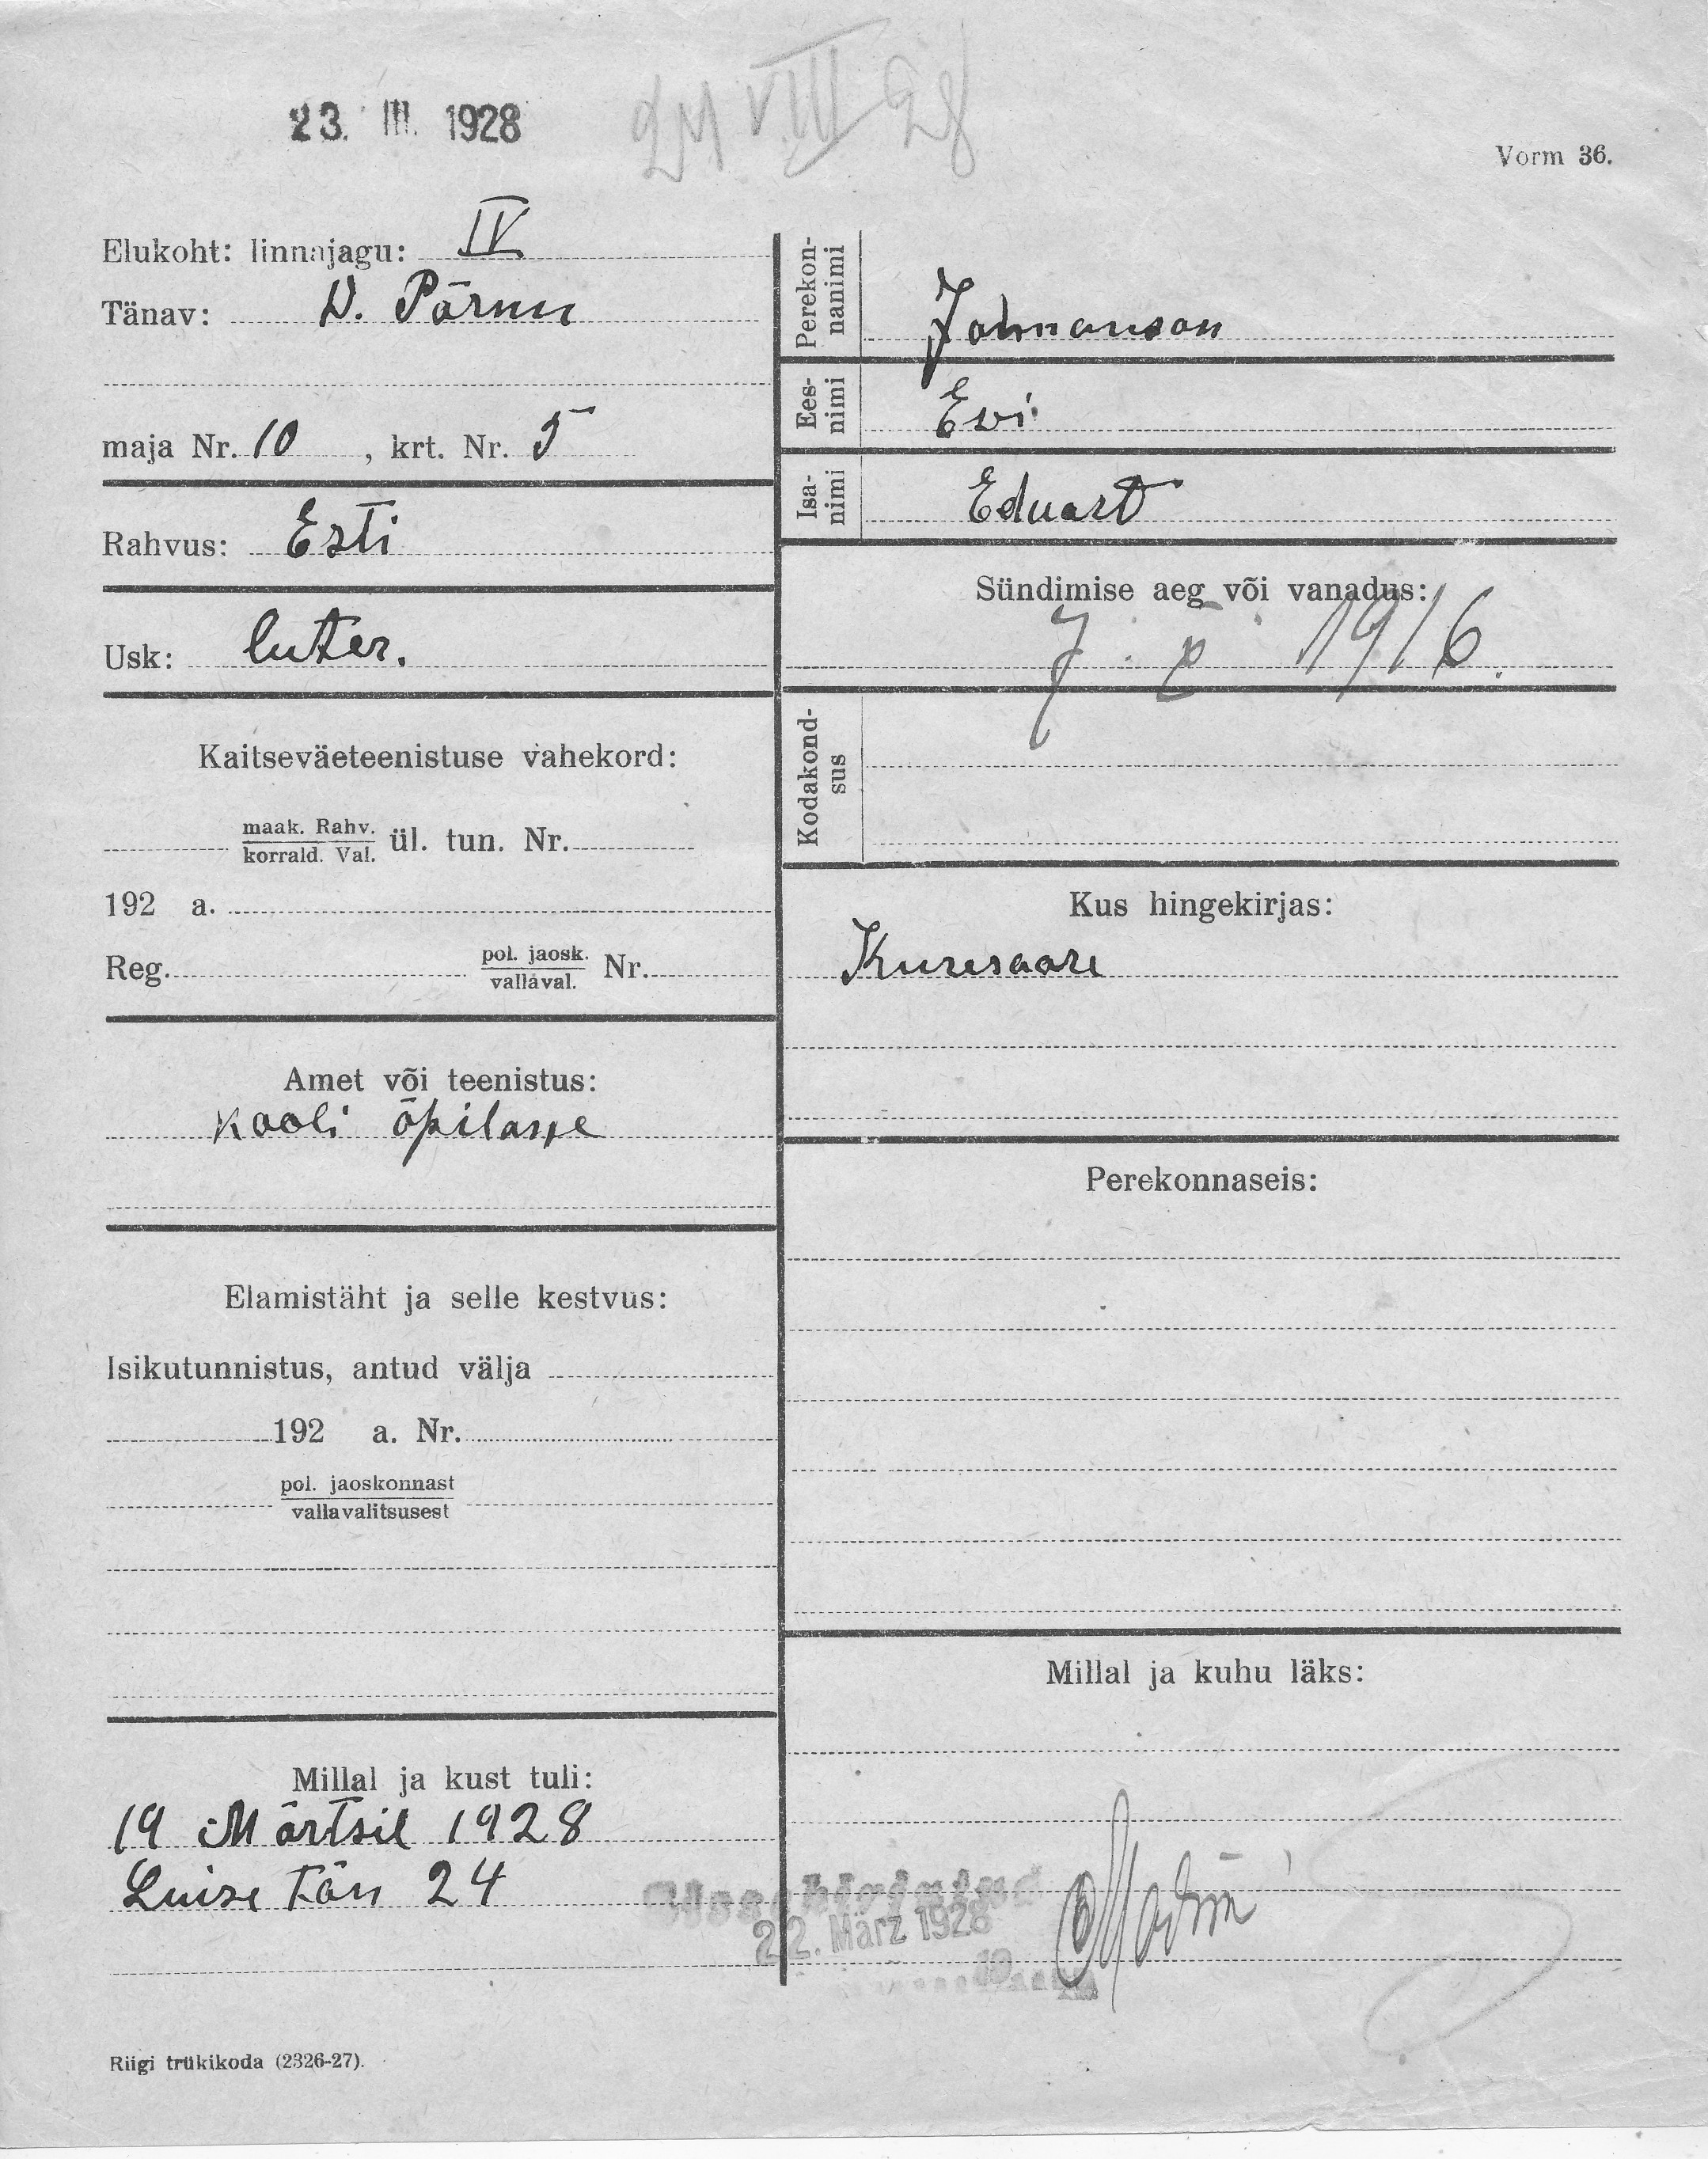 23. III. 1928
24 VIII 28
Vorm 36.
Elukoht: linnajagu: IV
Tänav: W. Pärnu
maja Nr. 10 , krt. Nr. 5
Rahvus: Esti
Usk: luter.
Kaitseväeteenistuse vahekord:
maak. Rahv.
korrald. Val. ül. tun. Nr.
192 a.
Reg. pol. jaosk. Nr.
vallaval.
Amet või teenistus:
kooli õpilane
Elamistäht ja selle kestvus:
Isikutunnistus, antud välja
192 a. Nr.
pol. jaoskonnast
vallavalitsusest
Millal ja kust tuli:
19 Märtsil 1928
Luise tän 24
Perekon-
nanimi Johmanson
Ees-
nimi Evi
Isa-
nimi Eduart
Sündimise aeg või vanadus:
7. X 1916.
Kodakond-
sus
Kus hingekirjas:
Kuresaare
Perekonnaseis:
Millal ja kuhu läks:
22. März 1928
Riigi trükikoda (2326-27).